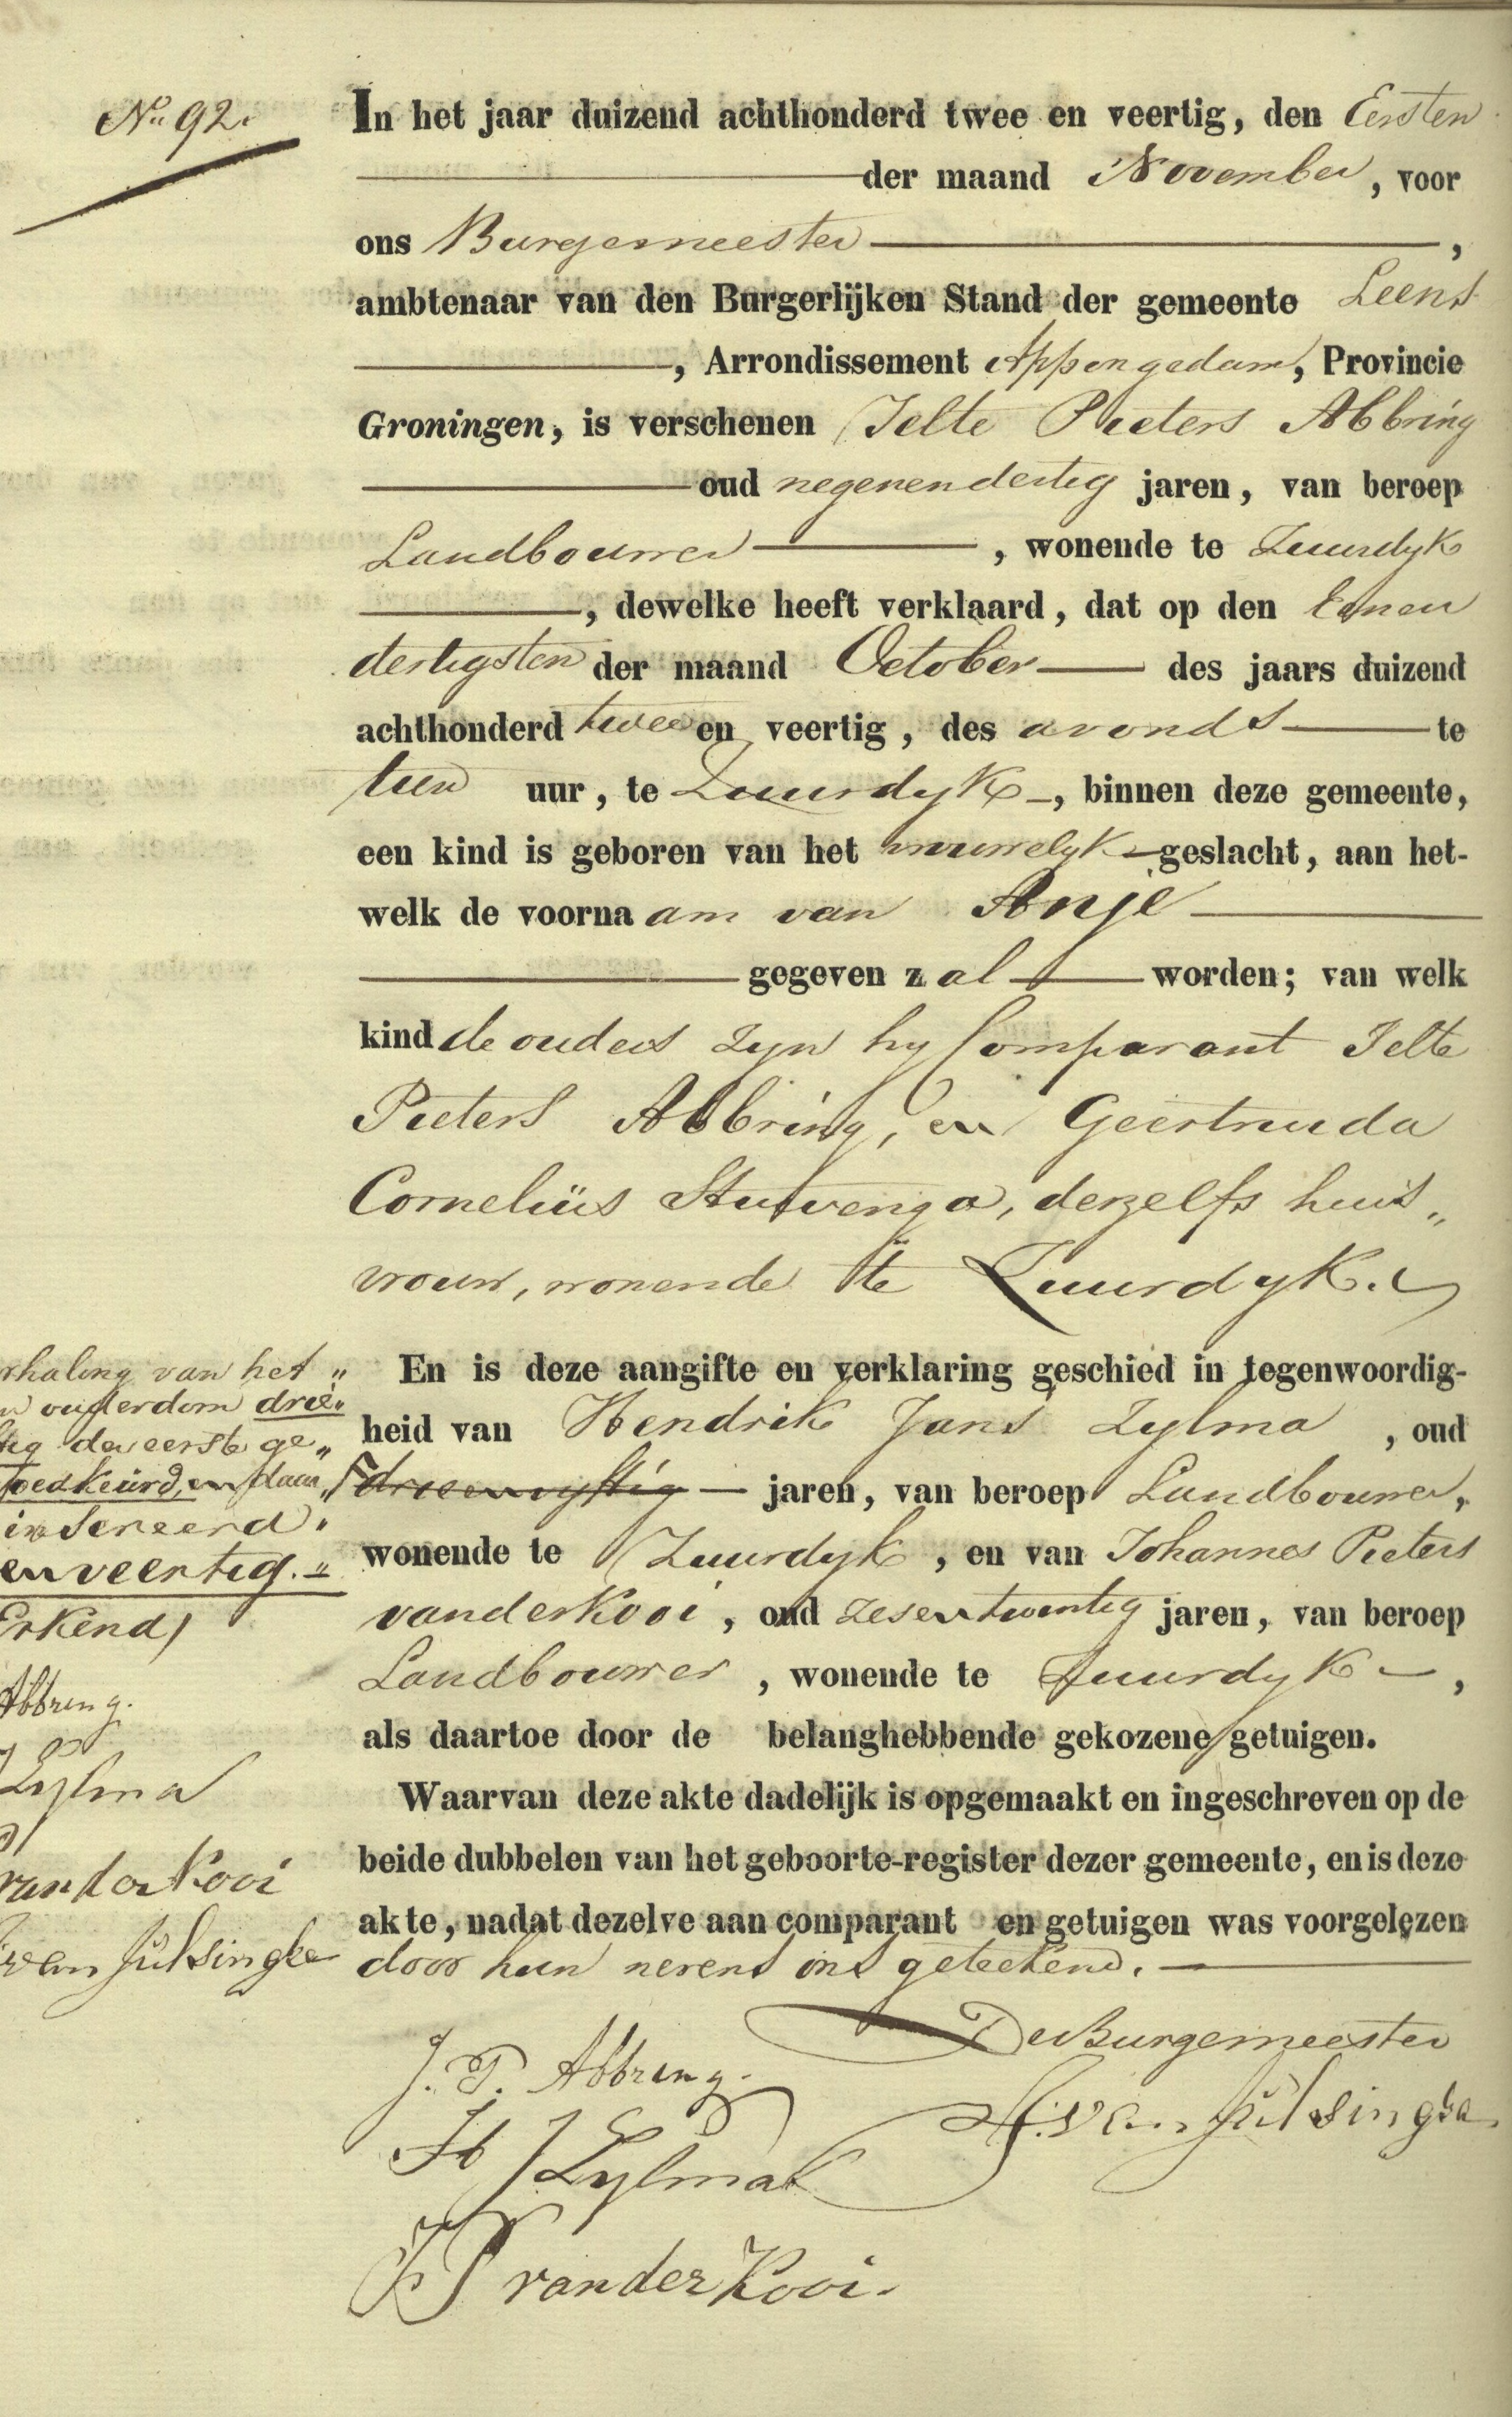 No. 92.
In het jaar duizend achthonderd twee en veertig, den Eersten
der maand November, voor
ons Burgemeester,
ambtenaar van den Burgerlijken Stand der gemeente Leens
, Arrondissement Appingedam, Provincie
Groningen, is verschenen Jelte Pieters Abbring
oud negenendertig jaren, van beroep
Landbouwer, wonende te Zuurdyk
, dewelke heeft verklaard, dat op den Eenen
dertigsten der maand October des jaars duizend
achthonderd twee en veertig, des avonds te
tien uur, te Zuurdyk, binnen deze gemeente,
een kind is geboren van het vrouwelyk geslacht, aan het-
welk de voornaam van Anje
gegeven zal worden; van welk
kind de ouders zyn hy Comparant Jelte
Pieters Abbring, en Geertruida
Cornelius Stuivenga, deszelfs huis„
vrouw, wonende te Zuurdyk.
En is deze aangifte en verklaring geschied in tegenwoordig-
heid van Hendrik Jans Zylma, oud
drieenvyftig jaren, van beroep Landbouwer,
wonende te Zuurdyk, en van Johannes Pieters
van der Kooi, oud zesentwintig jaren, van beroep
Landbouwer, wonende te Zuurdyk,
als daartoe door de belanghebbende gekozene getuigen.
Waarvan deze akte dadelijk is opgemaakt en ingeschreven op de
beide dubbelen van het geboorte-register dezer gemeente, en is deze
akte, nadat dezelve aan comparant en getuigen was voorgelezen
door hun nevens ons geteekend.
De Burgemeester
J. P. Abbring.
H J Zylma
J P van der Kooi.
rhaling van het „
ouderdom drie„
tig der eerste ge„
oedkeurd, en daar„
insereerd „
en veertig. „
Erkend
Abbring.
Zylma
van der Kooi